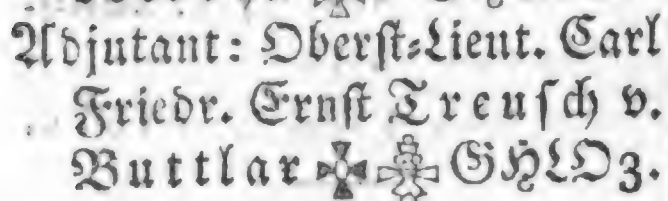 Adjutant: Oberst-Lieut. Carl
Friedr. Ernst Treusch v.
Buttlar GHLO3.